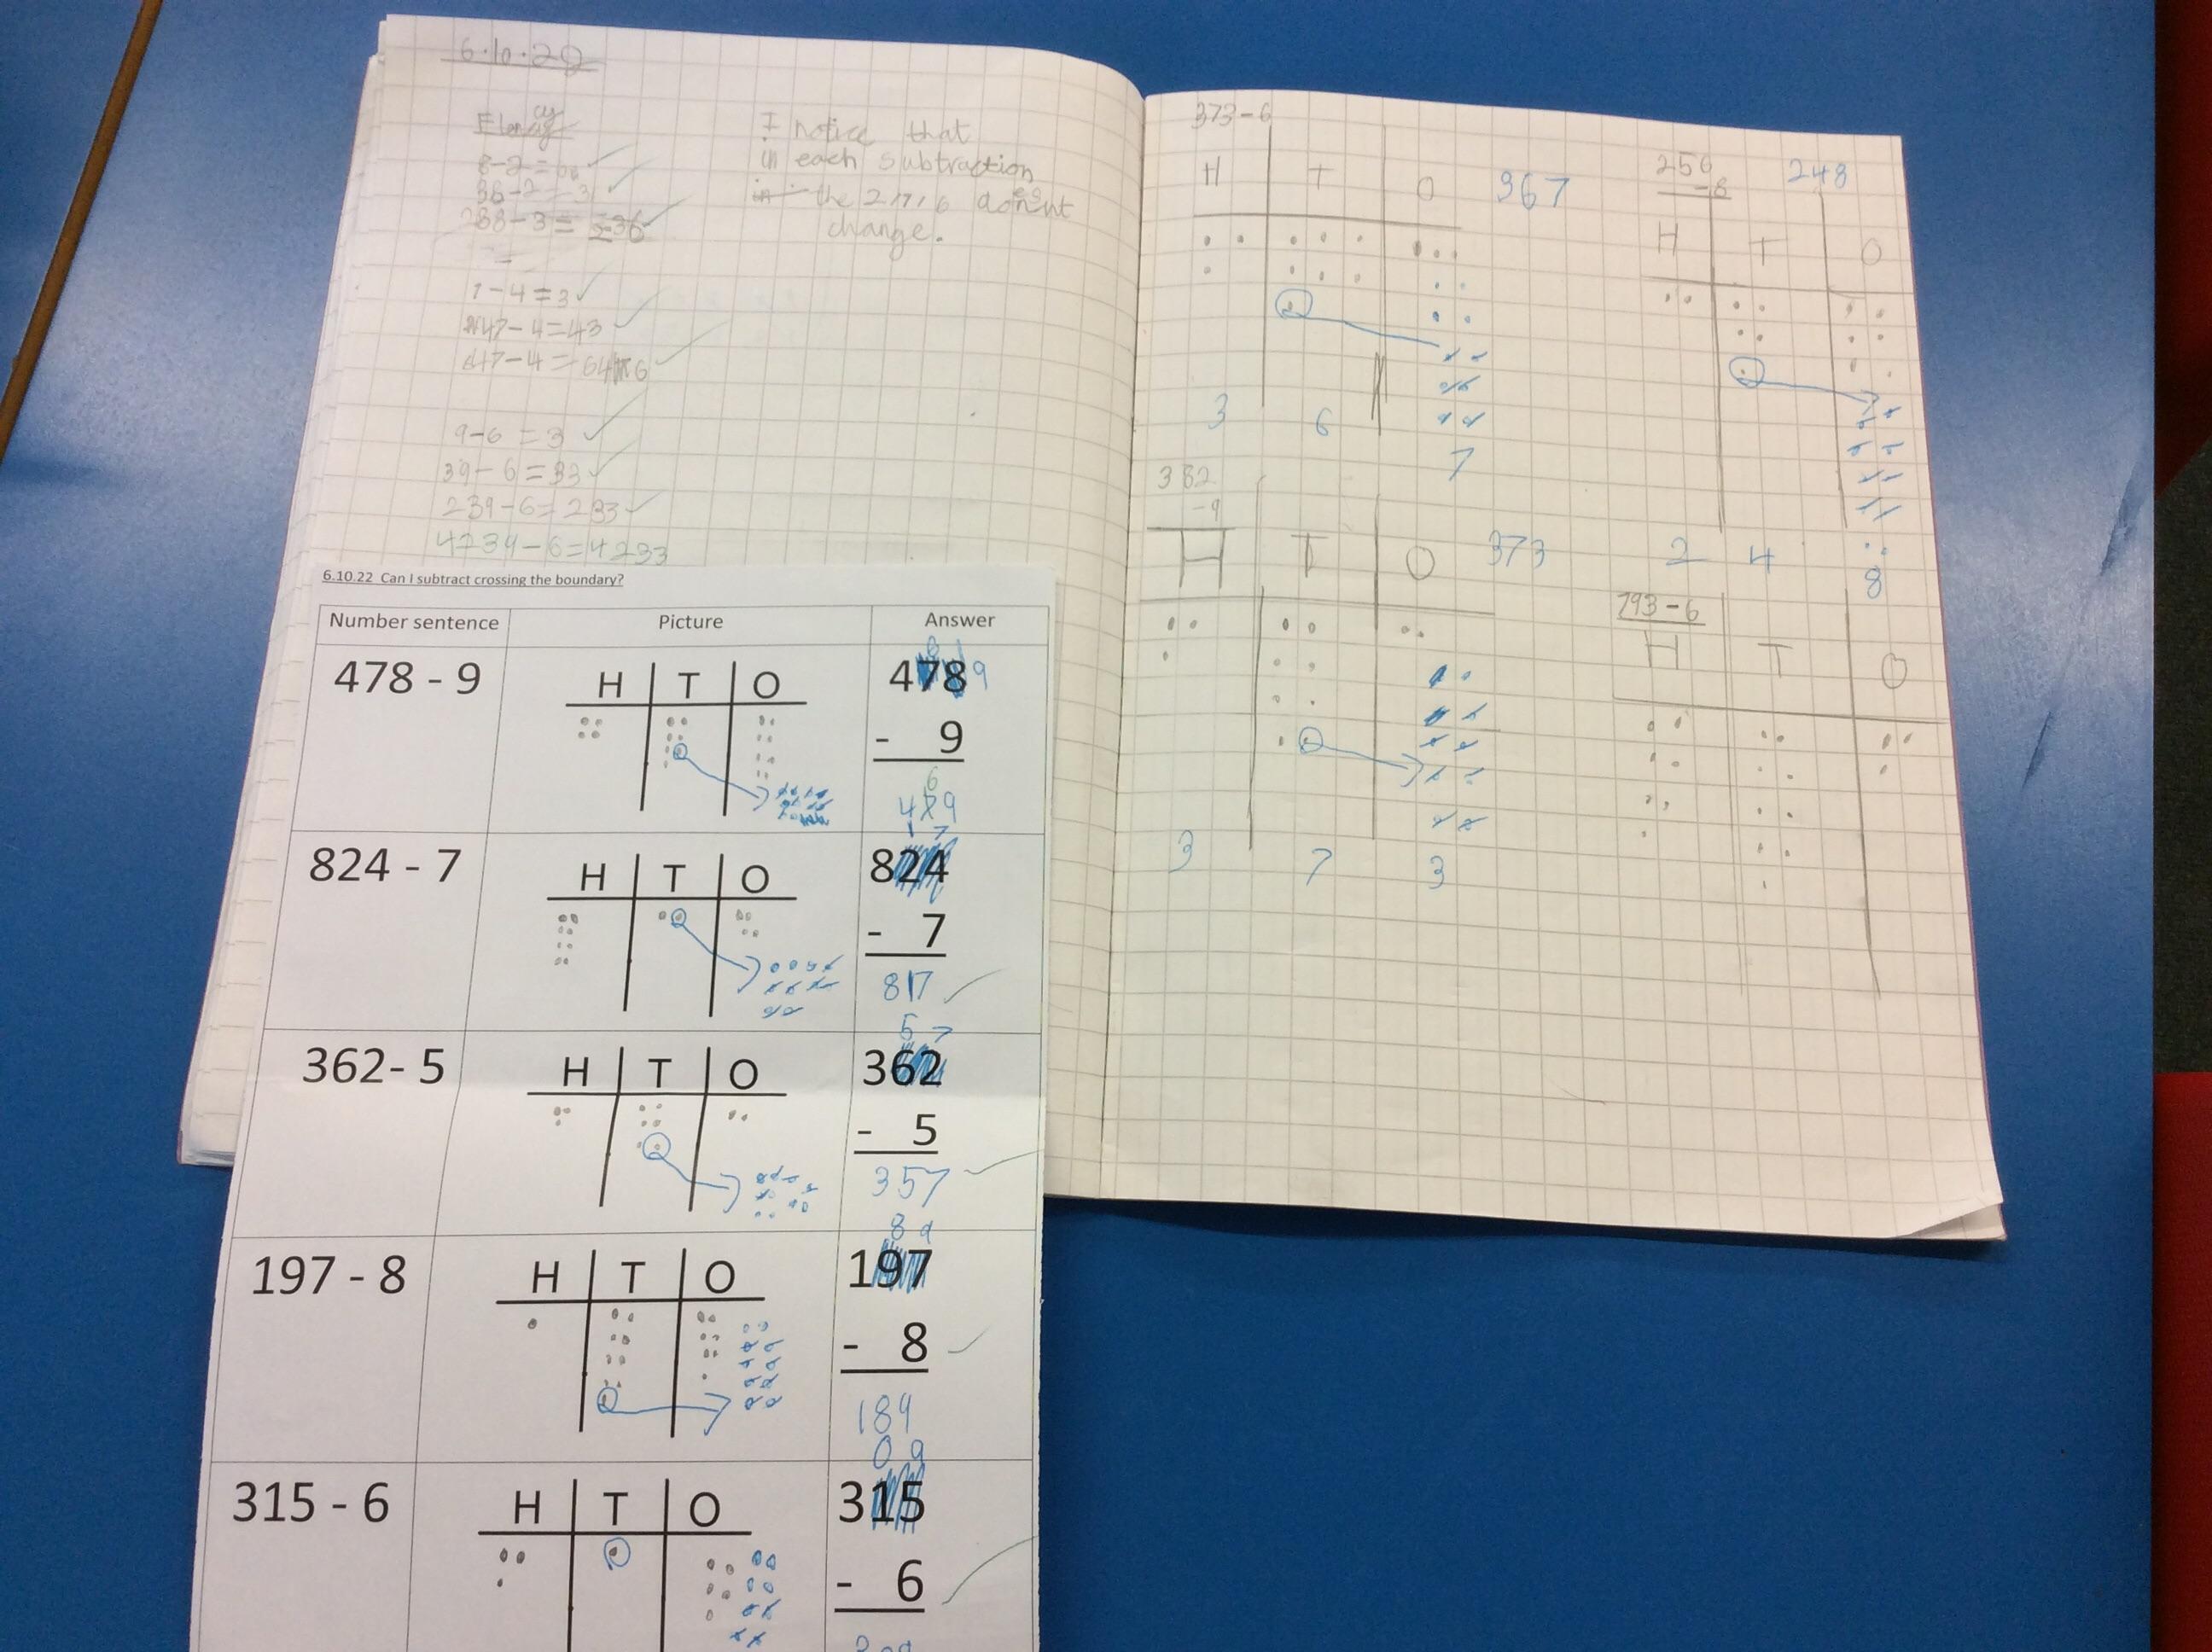 6.10.22
Fluency
8-2=
38-2=3
238-3= 236
7-4=3
47-4=43
647-4=64
9-6=3
39-6=33
239-6=233
4239-6=4233
I notice that
in each subtraction
the
change.
6.10.22 Can I subtract crossing the boundary?
Number sentence Picture Answer
478 - 9 H T O 478
- 9
469
824 - 7 H T O 824
- 7
817
362- 5 H T O 362
- 5
357
197 - 8 H T O 197
- 8
189
315 - 6 H T O 315
- 6
309
373-6
H T O 367
3 6 7
256
-8 248
H T O
2 4 8
382
-9
H T O 373
3 7 3
793-6
H T O